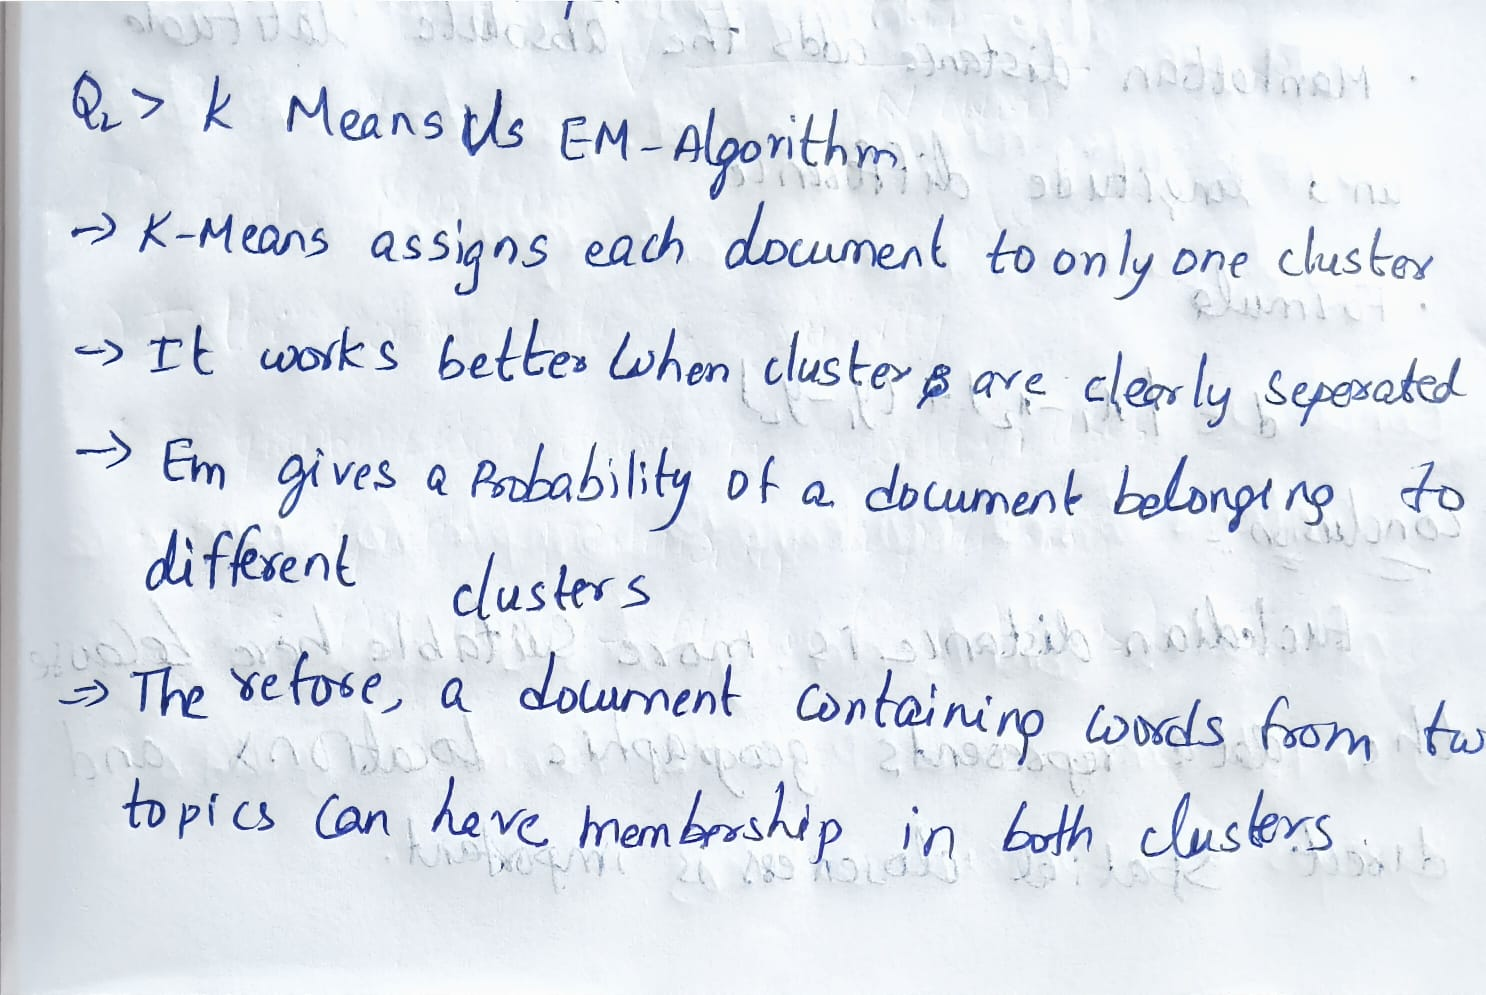 Q2> K Means Vs EM-Algorithm
-> K-Means assigns each document to only one cluster
-> It works better when clusters are clearly seperated
-> Em gives a Probability of a document belonging to
different clusters
=> The refore, a document containing words from tw
topics can have membership in both clusters.